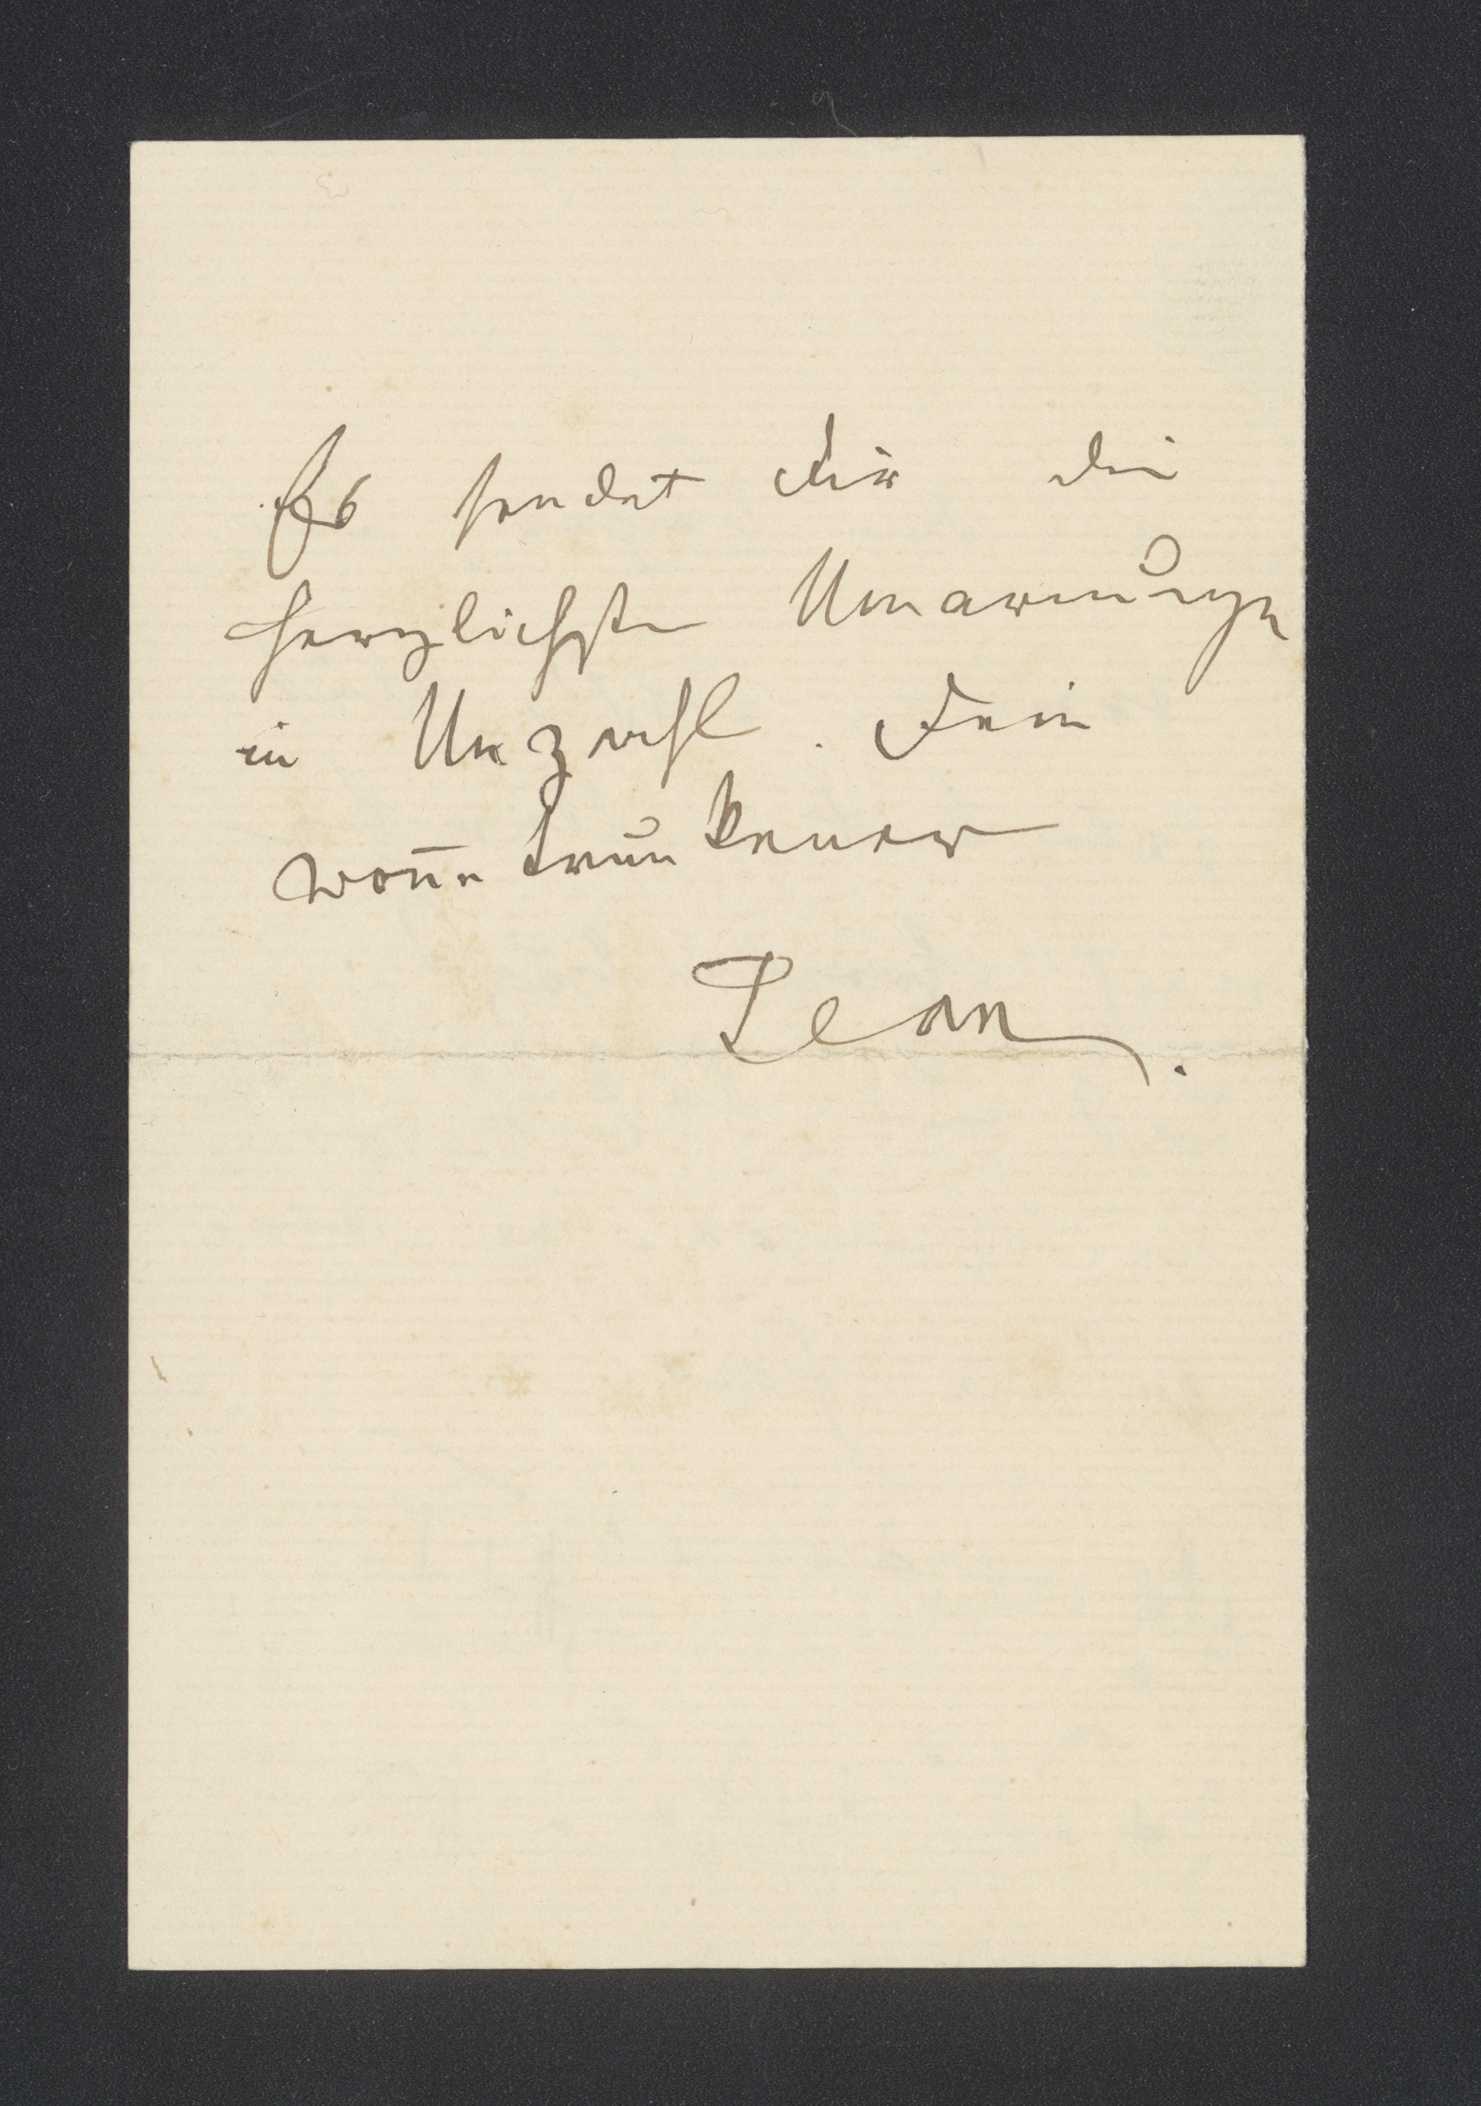 Es sendet Dir die
herzlichste Umarmunge
in Unzahl. Dein
won̄etrunkener
Jean.